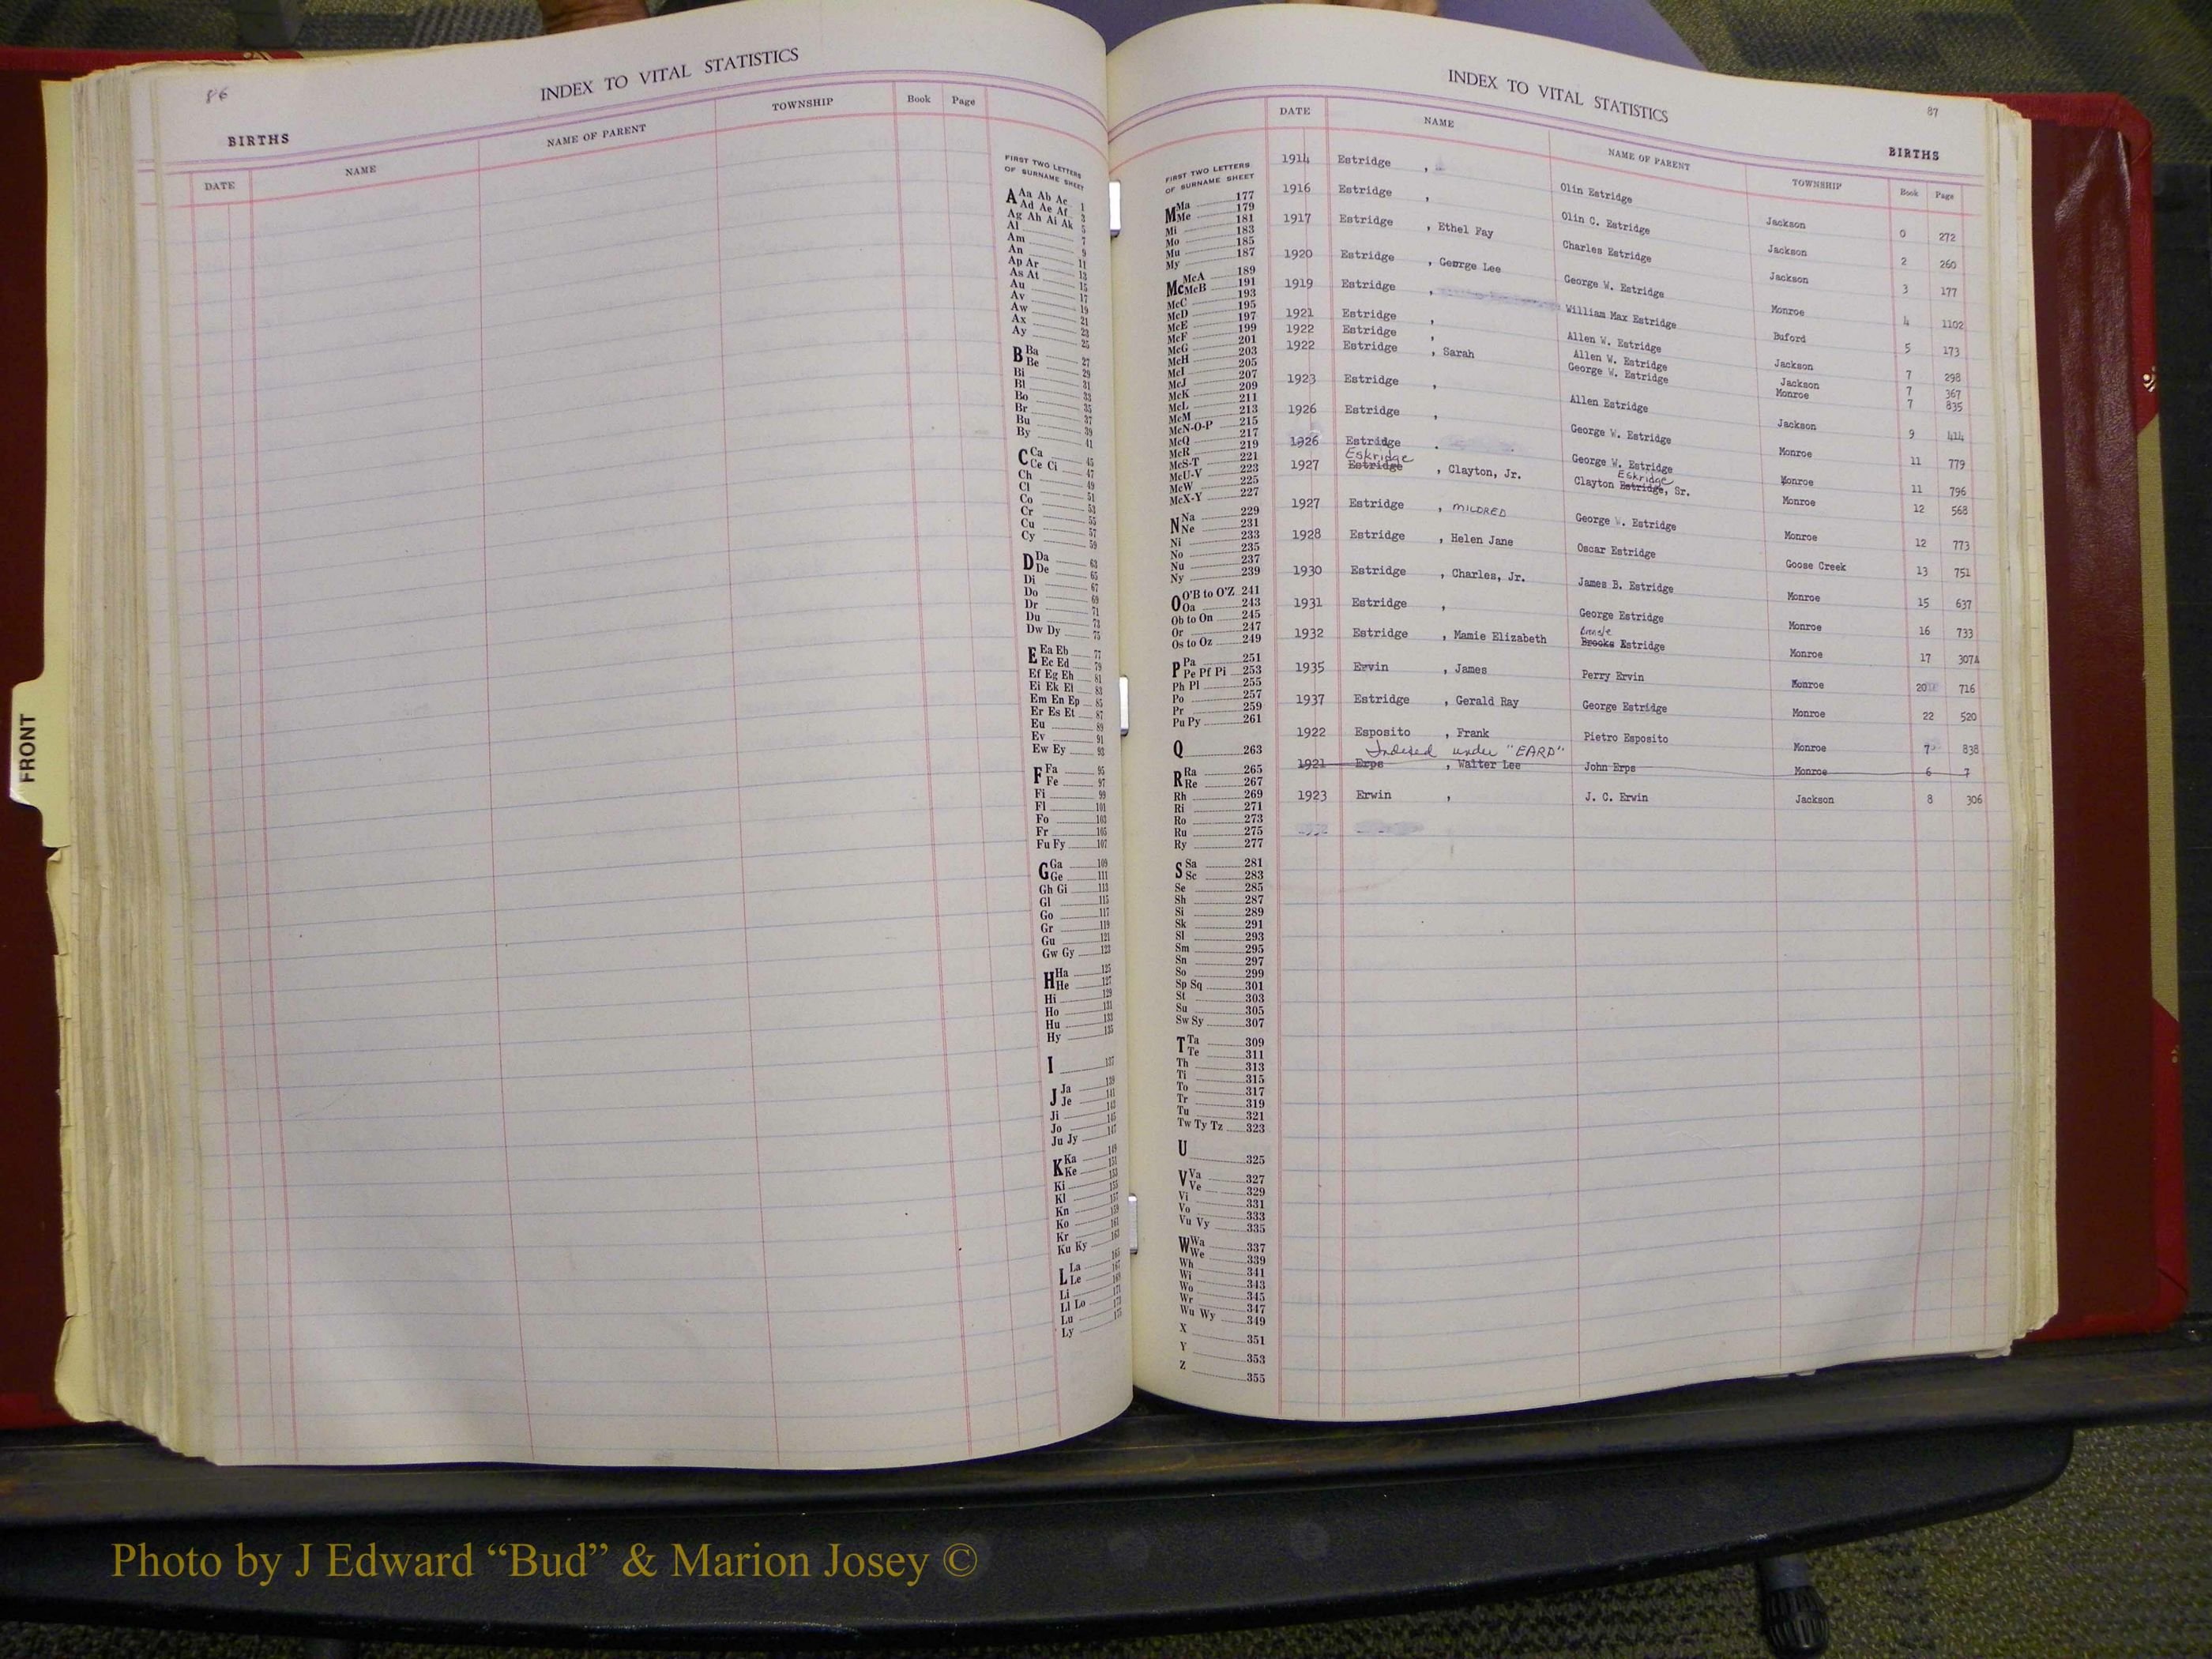 86
INDEX TO VITAL STATISTICS
BIRTHS
DATE NAME NAME OF PARENT TOWNSHIP Book Page
FIRST TWO LETTERS
OF SURNAME SHEET
A Aa Ab Ac 1
Ad Ae Af 3
Ag Ah Ai Ak 5
Al 7
Am 9
An 11
Ap Ar 13
As At 15
Au 17
Av 19
Aw 21
Ax 23
Ay 25
B Ba 27
Be 29
Bi 31
Bl 33
Bo 35
Br 37
Bu 39
By 41
C Ca 45
Ce Ci 47
Ch 49
Cl 51
Co 53
Cr 55
Cu 57
Cy 59
D Da 63
De 65
Di 67
Do 69
Dr 71
Du 73
Dw Dy 75
E Ea Eb 77
Ec Ed 79
Ef Eg Eh 81
Ei Ek El 83
Em En Ep 85
Er Es Et 87
Eu 89
Ev 91
Ew Ey 93
F Fa 95
Fe 97
Fi 99
Fl 101
Fo 103
Fr 105
Fu Fy 107
G Ga 109
Ge 111
Gh Gi 113
Gl 115
Go 117
Gr 119
Gu 121
Gw Gy 123
H Ha 125
He 127
Hi 129
Ho 131
Hu 133
Hy 135
I 137
J Ja 139
Je 141
Ji 143
Jo 145
Ju Jy 147
K Ka 149
Ke 151
Ki 153
Kl 155
Kn 157
Ko 159
Kr 161
Ku Ky 163
L La 165
Le 167
Li 169
Ll Lo 171
Lu 173
Ly 175
INDEX TO VITAL STATISTICS
87
BIRTHS
DATE NAME NAME OF PARENT TOWNSHIP Book Page
FIRST TWO LETTERS
OF SURNAME SHEET
M Ma 177
Me 179
Mi 181
Mo 183
Mu 185
My 187
Mc McA 189
McB 191
McC 193
McD 195
McE 197
McF 199
McG 201
McH 203
McI 205
McJ 207
McK 209
McL 211
McM 213
McN-O-P 215
McQ 217
McR 219
McS-T 221
McU-V 223
McW 225
McX-Y 227
N Na 229
Ne 231
Ni 233
No 235
Nu 237
Ny 239
O O'B to O'Z 241
Oa 243
Ob to On 245
Or 247
Os to Oz 249
P Pa 251
Pe Pf Pi 253
Ph Pl 255
Po 257
Pr 259
Pu Py 261
Q 263
R Ra 265
Re 267
Rh 269
Ri 271
Ro 273
Ru 275
Ry 277
S Sa 281
Sc 283
Se 285
Sh 287
Si 289
Sk 291
Sl 293
Sm 295
Sn 297
So 299
Sp Sq 301
St 303
Su 305
Sw Sy 307
T Ta 309
Te 311
Th 313
Ti 315
To 317
Tr 319
Tu 321
Tw Ty Tz 323
U 325
V Va 327
Ve 329
Vi 331
Vo 333
Vu Vy 335
W Wa 337
We 339
Wh 341
Wi 343
Wo 345
Wr 347
Wu Wy 349
X 351
Y 353
Z 355
1914 Estridge , Olin Estridge Jackson 0 272
1916 Estridge , Olin C. Estridge Jackson 2 260
1917 Estridge , Ethel Fay Charles Estridge Jackson 3 177
1920 Estridge , George Lee George W. Estridge Monroe 4 1102
1919 Estridge , William Max Estridge Buford 5 173
1921 Estridge , Allen W. Estridge Jackson 7 298
1922 Estridge , Allen W. Estridge Jackson 7 367
1922 Estridge , Sarah George W. Estridge Monroe 7 835
1923 Estridge , Allen Estridge Jackson 9 414
1926 Estridge , George W. Estridge Monroe 11 779
1926 Estridge . George W. Estridge Monroe 11 796
Eskridge Eskridge
1927 Estridge , Clayton, Jr. Clayton Estridge, Sr. Monroe 12 568
1927 Estridge , MILDRED George W. Estridge Monroe 12 773
1928 Estridge , Helen Jane Oscar Estridge Goose Creek 13 751
1930 Estridge , Charles, Jr. James B. Estridge Monroe 15 637
1931 Estridge , George Estridge Monroe 16 733
1932 Estridge , Mamie Elizabeth Brooks Estridge Monroe 17 307A
1935 Ervin , James Perry Ervin Monroe 20 716
1937 Estridge , Gerald Ray George Estridge Monroe 22 520
1922 Esposito , Frank Pietro Esposito Monroe 7 838
Indexed under "EARP"
1921 Erps , Walter Lee John Erps Monroe 6 7
1923 Erwin , J. C. Erwin Jackson 8 306
FRONT
Photo by J Edward “Bud” & Marion Josey ©